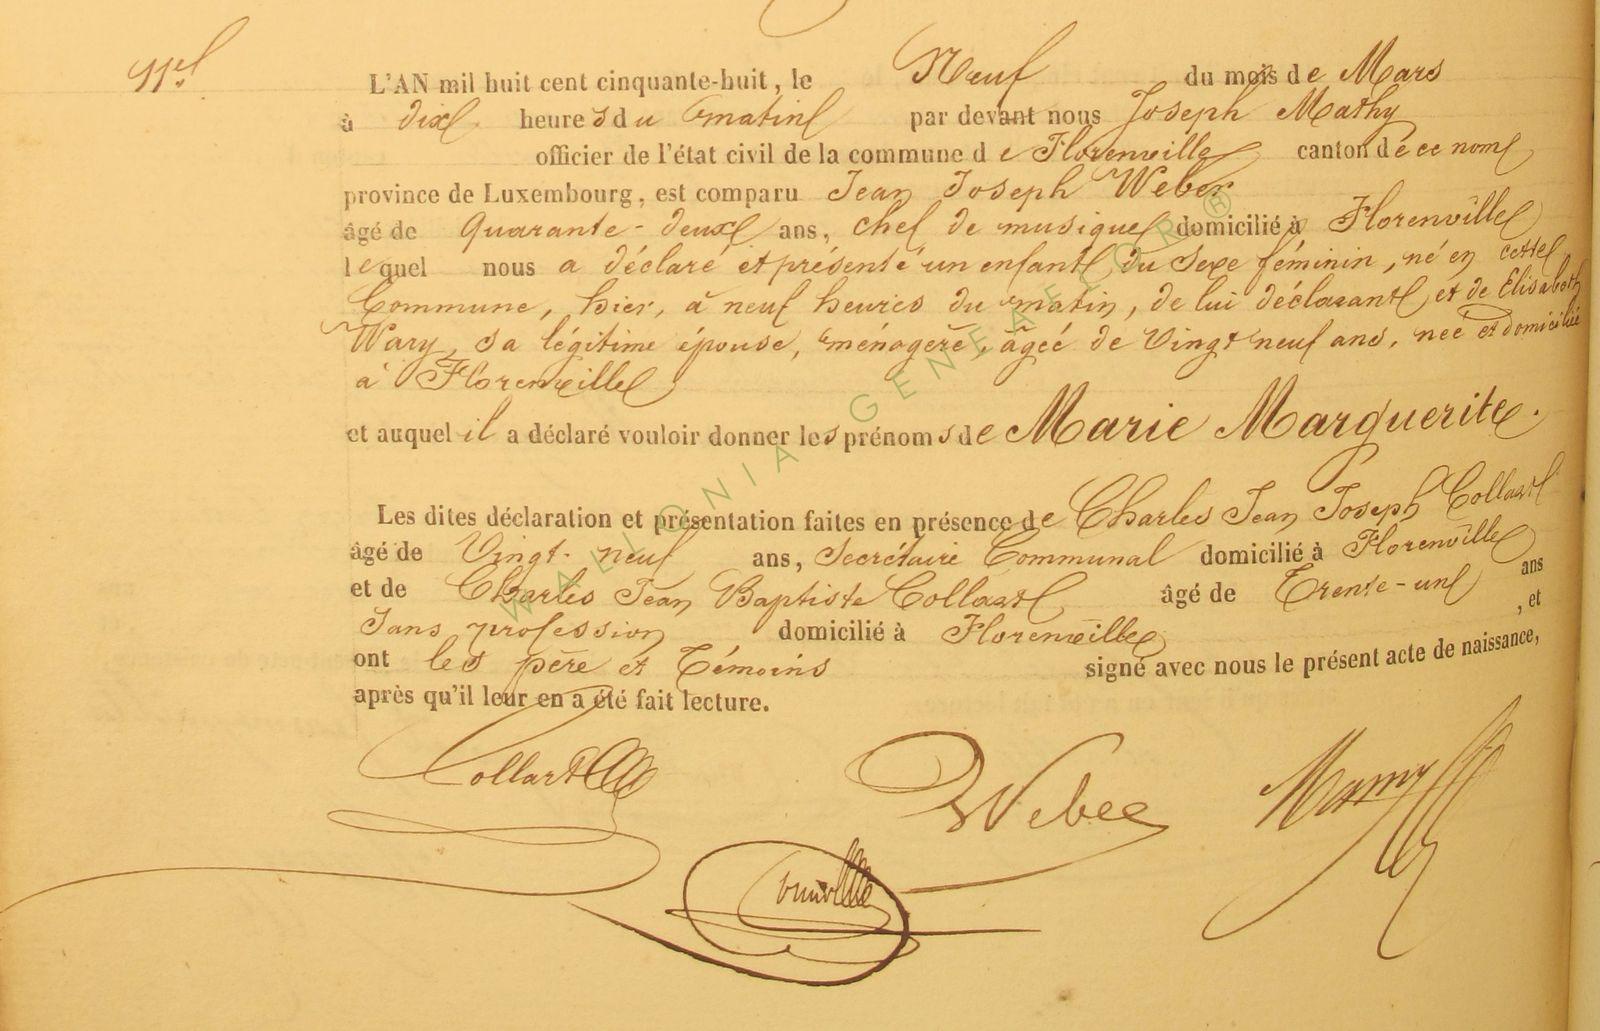 11e
L'AN mil huit cent cinquante-huit, le Neuf du mois de Mars
à dix heures du matin par devant nous Joseph Mathy
officier de l'état civil de la commune de Florenville canton de ce nom
province de Luxembourg, est comparu Jean Joseph Weber
âgé de Quarante-deux ans, chef de musique domicilié à Florenville
lequel nous a déclaré et présenté un enfant du sexe féminin, né en cette
Commune, hier, à neuf heures du matin, de lui déclarant et de Elisabeth
Wary, sa légitime épouse, ménagère, âgée de Vingt neuf ans, née et domiciliée
à Florenville
et auquel il a déclaré vouloir donner les prénoms de Marie Marguerite.
Les dites déclaration et présentation faites en présence de Charles Jean Joseph Collart
âgé de Vingt-neuf ans, Secrétaire Communal domicilié à Florenville
et de Charles Jean Baptiste Collart âgé de Trente-un ans
Sans profession domicilié à Florenville , et
ont les père et Témoins signé avec nous le présent acte de naissance,
après qu'il leur en a été fait lecture.
Collart Weber
WALLONIA GENEALECOR ®